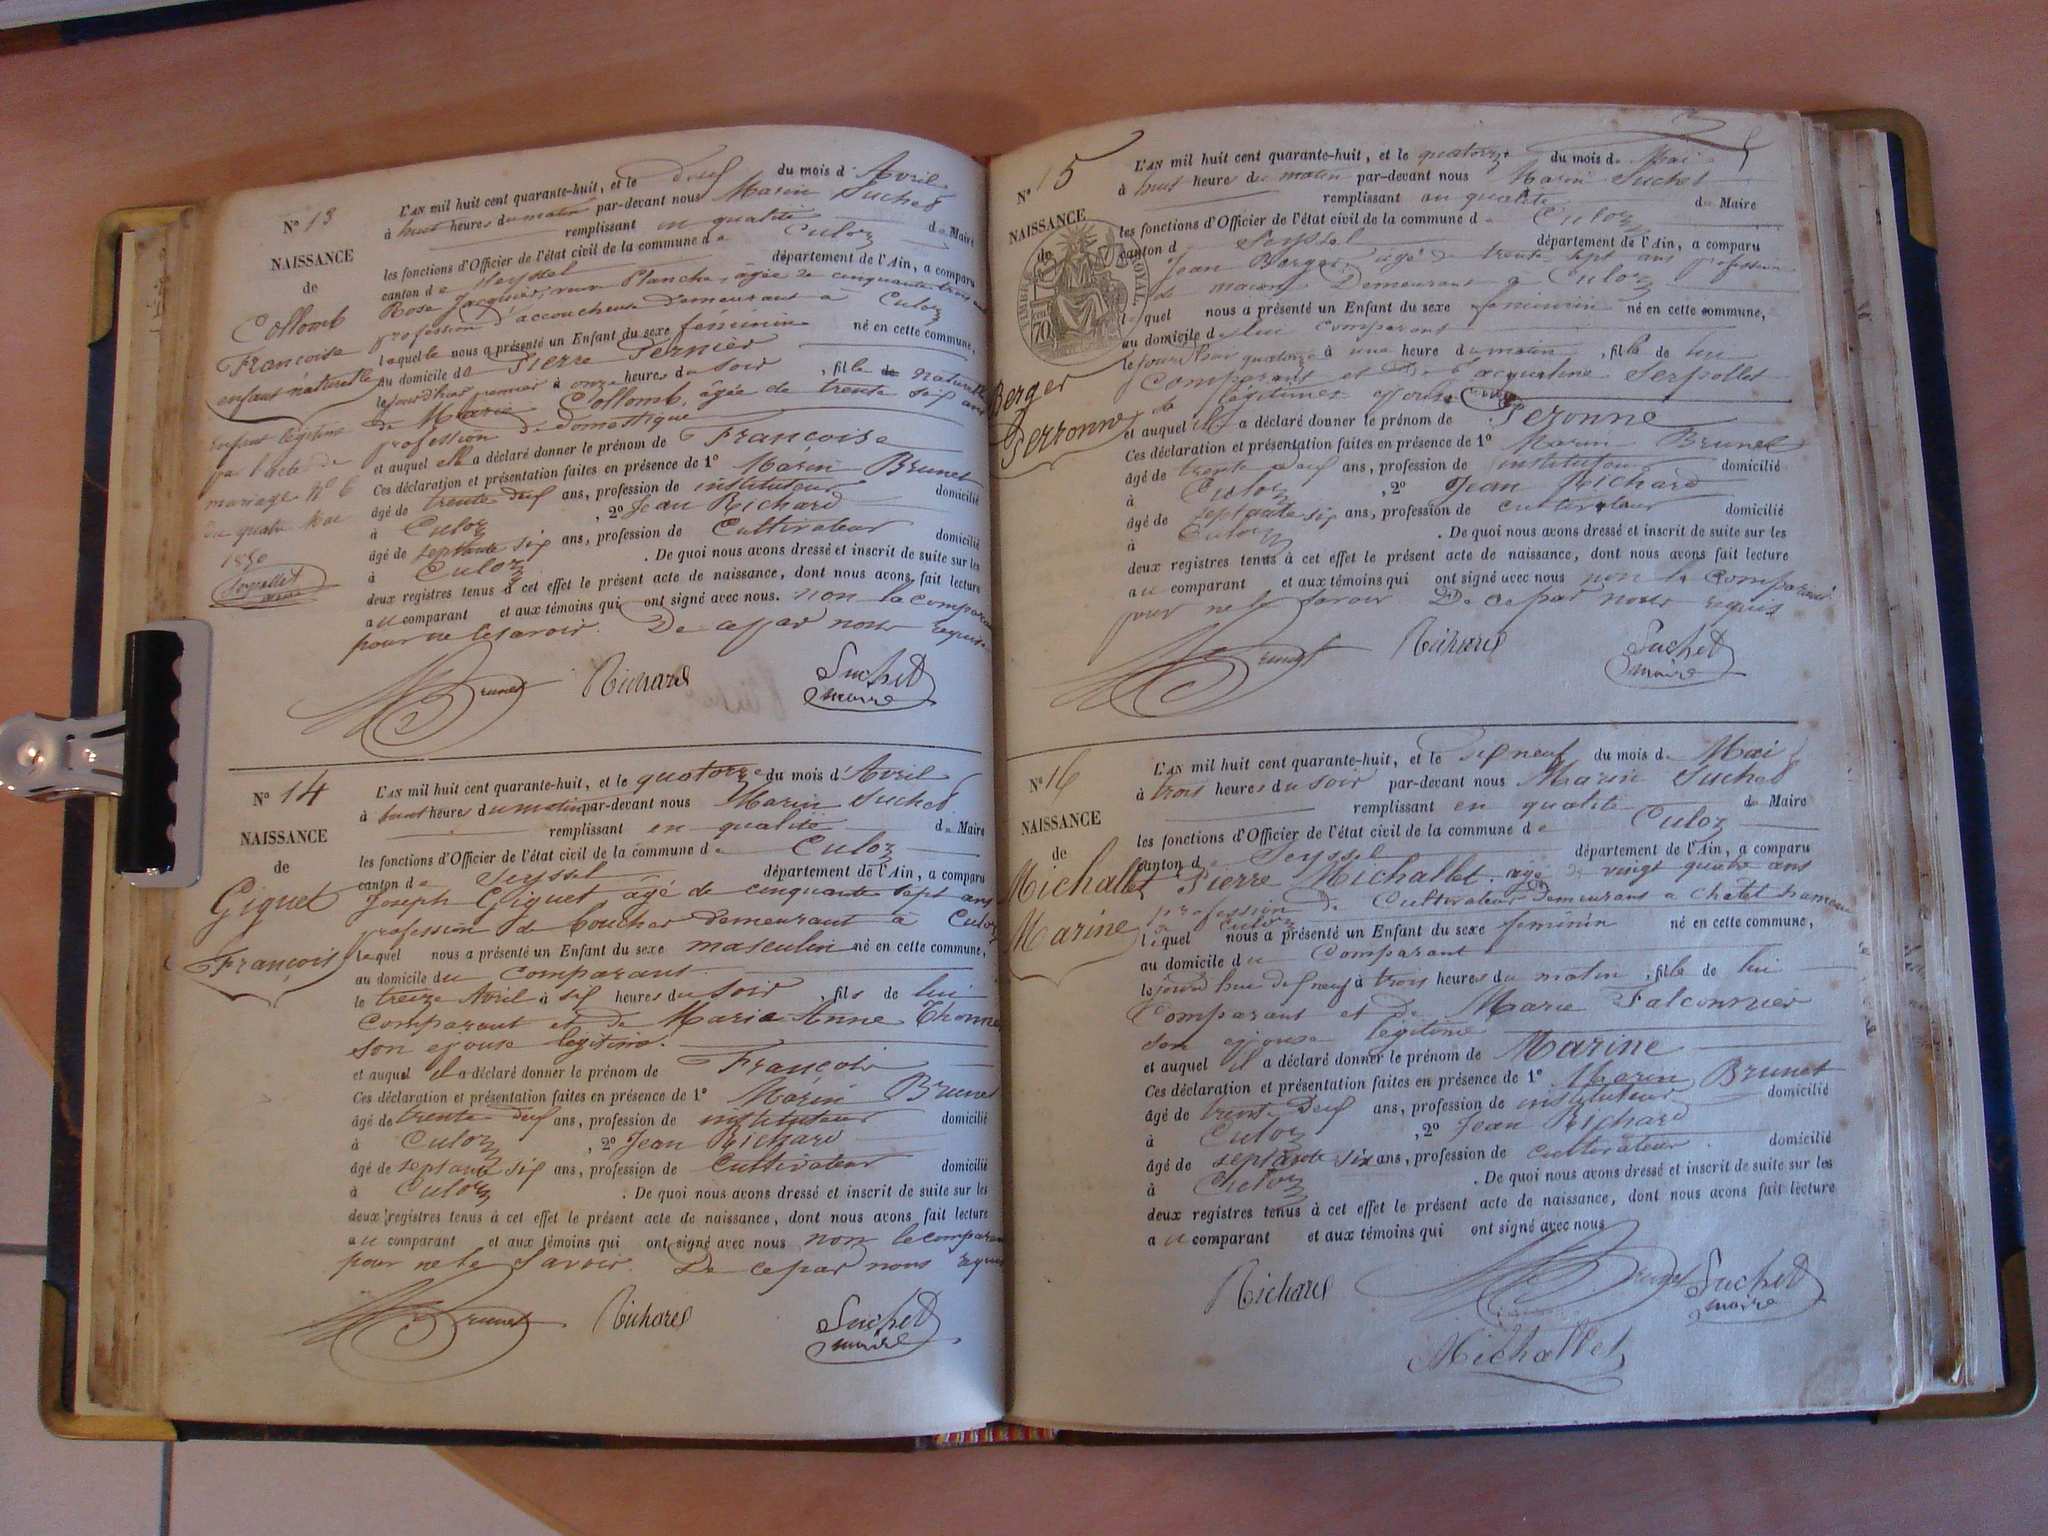 N° 13
NAISSANCE
de
Collomb
Françoise
enfant naturelle
enfant légitimé
par l'acte de
mariage N° 6
du quatre Mai
1850
L'AN mil huit cent quarante-huit, et le deux du mois d'Avril
à huit heures du matin par-devant nous Marin Suchet
remplissant en qualité de Maire
les fonctions d'Officier de l'état civil de la commune de Culoz
canton de Seyssel département de l'Ain, a comparu
Rose Jacquier, veuve Planche, âgée de cinquante trois ans
profession d'accoucheuse demeurant à Culoz
laquelle nous a présenté un Enfant du sexe féminin né en cette commune,
au domicile de Pierre Pernier
le jourd'hier premier à onze heures du soir, fille naturelle
de Marie Collomb, âgée de trente six ans
profession de domestique
et auquel elle a déclaré donner le prénom de Françoise
Ces déclaration et présentation faites en présence de 1° Marin Brunet
âgé de trente deux ans, profession de instituteur domicilié
à Culoz, 2° Jean Richard
âgé de septante six ans, profession de Cultivateur domicilié
à Culoz. De quoi nous avons dressé et inscrit de suite sur les
deux registres tenus à cet effet le présent acte de naissance, dont nous avons fait lecture
au comparant et aux témoins qui ont signé avec nous. non la comparante
pour ne le savoir. De ce par nous requis
Brunet Richard Suchet
maire
N° 14
NAISSANCE
de
Giguet
François
L'AN mil huit cent quarante-huit, et le quatorze du mois d'Avril
à huit heures du matin par-devant nous Marin Suchet
remplissant en qualité de Maire
les fonctions d'Officier de l'état civil de la commune de Culoz
canton de Seyssel département de l'Ain, a comparu
Joseph Giguet âgé de cinquante sept ans
profession de boucher demeurant à Culoz
lequel nous a présenté un Enfant du sexe masculin né en cette commune,
au domicile du comparant
le treize Avril à six heures du soir, fils de lui
comparant et de Marie Anne
son épouse légitime.
et auquel il a déclaré donner le prénom de François
Ces déclaration et présentation faites en présence de 1° Marin Brunet
âgé de trente deux ans, profession de instituteur domicilié
à Culoz, 2° Jean Richard
âgé de septante six ans, profession de Cultivateur domicilié
à Culoz. De quoi nous avons dressé et inscrit de suite sur les
deux registres tenus à cet effet le présent acte de naissance, dont nous avons fait lecture
au comparant et aux témoins qui ont signé avec nous non le comparant
pour ne le savoir. De ce par nous requis
Brunet Richard Suchet
maire
N° 15
NAISSANCE
de
TIMBRE ROYAL
70
Berger
Perronne
L'AN mil huit cent quarante-huit, et le quatorze du mois de Mai
à huit heures du matin par-devant nous Marin Suchet
remplissant en qualité de Maire
les fonctions d'Officier de l'état civil de la commune de Culoz
canton d Seyssel département de l'Ain, a comparu
Jean Berger, âgé de trente sept ans profession
de maçon Demeurant à Culoz
lequel nous a présenté un Enfant du sexe féminin né en cette commune,
au domicile de lui comparant
le jourd'hui quatorze à une heure du matin, fille de lui
comparant et de Jacqueline Serpollet
sa légitime épouse
et auquel il a déclaré donner le prénom de Peronne
Ces déclaration et présentation faites en présence de 1° Marin Brunet
âgé de trente deux ans, profession de instituteur domicilié
à Culoz, 2° Jean Richard
âgé de septante six ans, profession de cultivateur domicilié
à Culoz. De quoi nous avons dressé et inscrit de suite sur les
deux registres tenus à cet effet le présent acte de naissance, dont nous avons fait lecture
au comparant et aux témoins qui ont signé avec nous non le comparant
pour ne le savoir De ce par nous requis
Brunet Richard Suchet
maire
N° 16
NAISSANCE
de
Michallet
Marine
L'AN mil huit cent quarante-huit, et le dix neuf du mois de Mai
à trois heures du soir par-devant nous Marin Suchet
remplissant en qualité de Maire
les fonctions d'Officier de l'état civil de la commune de Culoz
canton de Seyssel département de l'Ain, a comparu
Pierre Michallet, âgé de vingt quatre ans
profession de Cultivateur demeurant a Chatel hameau
de Culoz
lequel nous a présenté un Enfant du sexe féminin né en cette commune,
au domicile du Comparant
le jourd'hui dix neuf à trois heures du matin, fille de lui
Comparant et de Marie Falconnier
son épouse légitime
et auquel il a déclaré donner le prénom de Marine
Ces déclaration et présentation faites en présence de 1° Marin Brunet
âgé de trente deux ans, profession de instituteur domicilié
à Culoz, 2° Jean Richard
âgé de septante six ans, profession de cultivateur domicilié
à Culoz. De quoi nous avons dressé et inscrit de suite sur les
deux registres tenus à cet effet le présent acte de naissance, dont nous avons fait lecture
au comparant et aux témoins qui ont signé avec nous
Richard Brunet Suchet
maire
Michallet